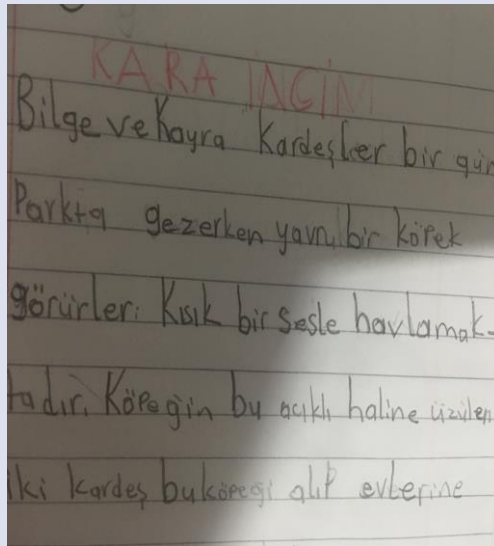 KARA İNCİM
Bilge ve Kayra Kardeşler bir gün
Parkta gezerken yavru bir köpek
görürler. Kısık bir sesle havlamak-
tadır. Köpeğin bu acıklı haline üzülen
iki kardeş bu köpeği alıp evlerine